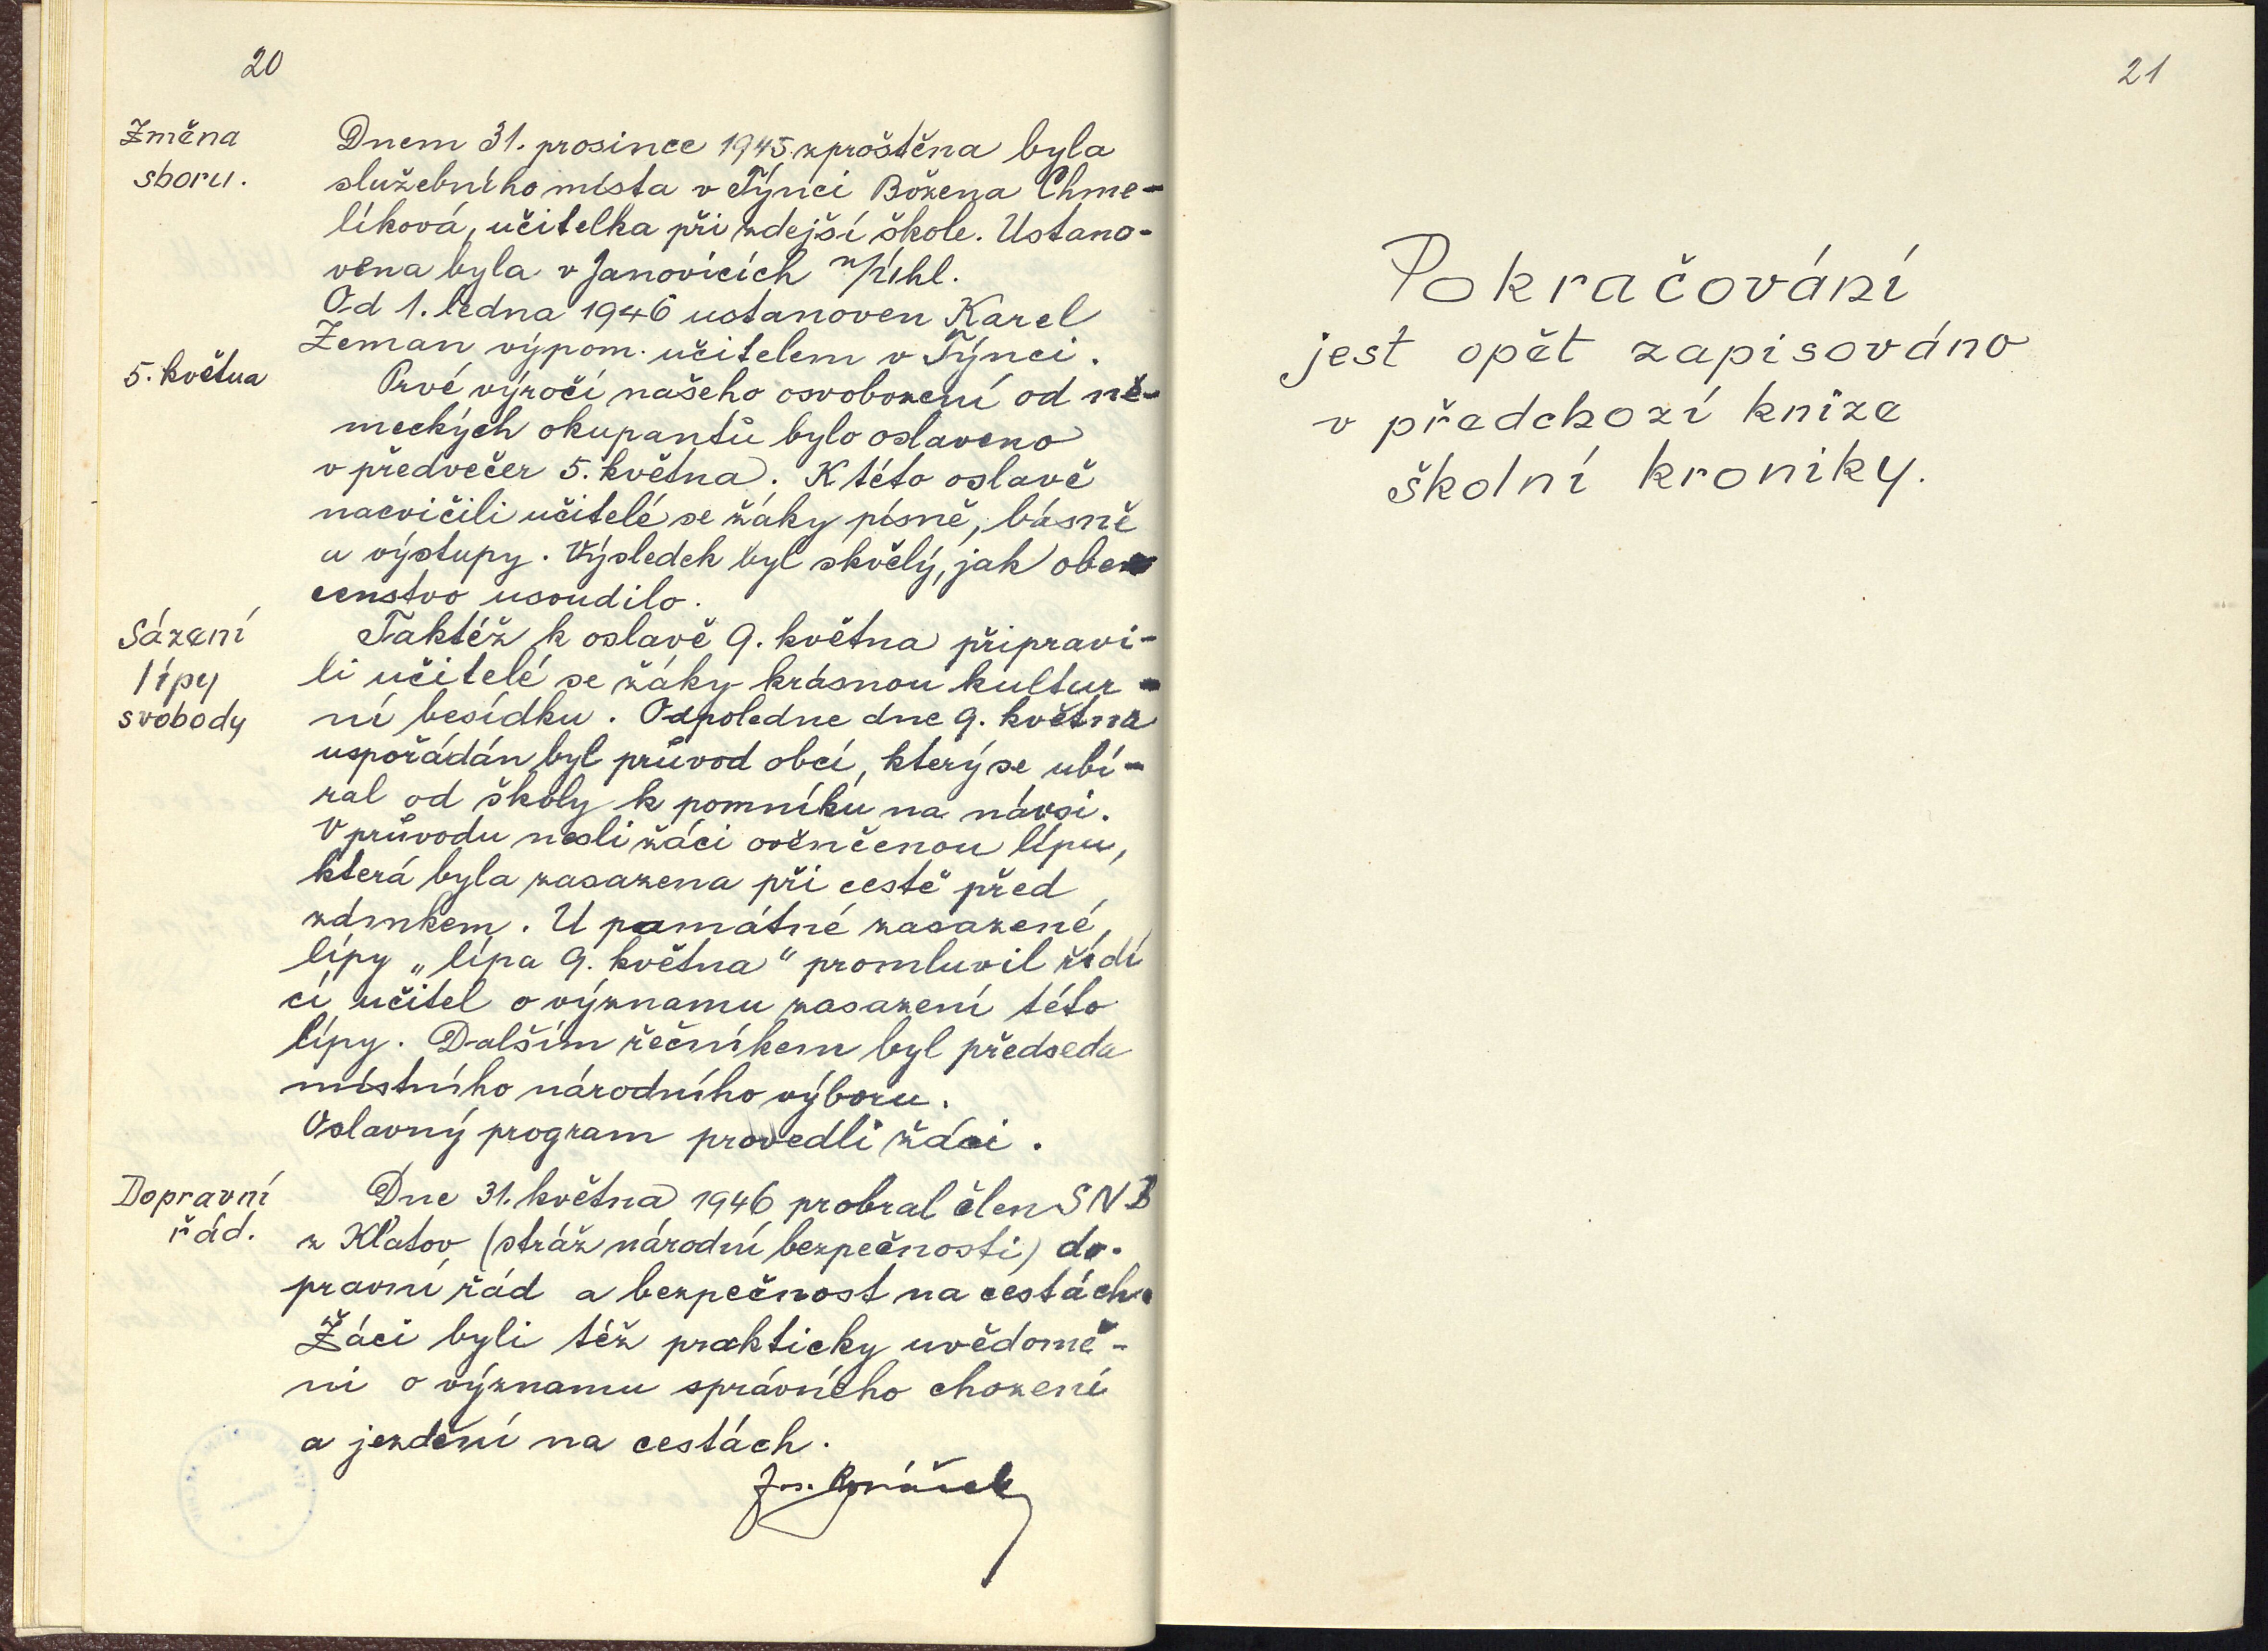 20
Změna
sboru.
Dnem 31. prosince 1945 zproštěna byla
služebního místa v Týnci Božena Chme-
líková, učitelka při zdejší škole. Ustano-
vena byla v Janovicích n/Úhl.
Od 1. ledna 1946 ustanoven Karel
Zeman výpom. učitelem v Týnci.
5. května
Prvé výročí našeho osvobození od ně-
meckých okupantů bylo oslaveno
v předvečer 5. května. K této oslavě
nacvičili učitelé se žáky písně, básně
a výstupy. Výsledek byl skvělý, jak obe-
censtvo usoudilo.
Sázení
lípy
svobody
Taktéž k oslavě 9. května připravi-
li učitelé se žáky krásnou kultur-
ní besídku. Odpoledne dne 9. května
uspořádán byl průvod obcí, který se ubí-
ral od školy k pomníku na návsi.
V průvodu nesli žáci ověnčenou lípu,
která byla zasazena při cestě před
zámkem. U památné zasazené
lípy „lípa 9. května" promluvil řídí
cí učitel o významu zasazení této
lípy. Dalším řečníkem byl předseda
místního národního výboru.
Oslavný program provedli žáci.
Dopravní
řád.
Dne 31. května 1946 probral člen SNB
z Klatov (stráž národní bezpečnosti) do-
pravní řád a bezpečnost na cestách.
Žáci byli též prakticky uvědomě-
ni o významu správného chození
a jezdění na cestách.
Jos.
21
Pokračování
jest opět zapisováno
v předchozí knize
školní kroniky.